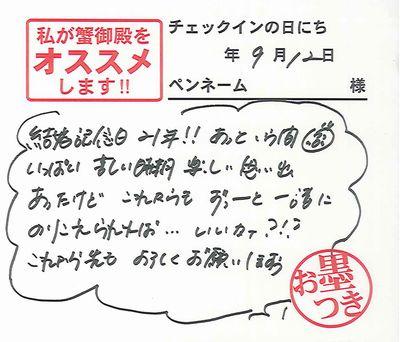 私が蟹御殿を
オススメ
します!!
チェックインの日にち
年 9月12日
ペンネーム 様
結婚記念日 21年!! あっという間 (笑)
いっぱい 苦しい時期 楽しい 思い出
あったけど これからも ずーっと 一緒に
のりこえられれば… いいカナ?!?
これから先も よろしく お願いします
お墨つき